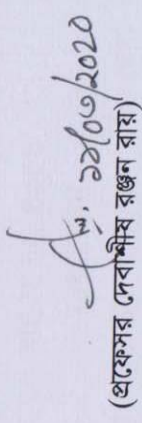 ১১/০৩/২০২০
(প্রফেসর দেবাশীষ রঞ্জন রায়)